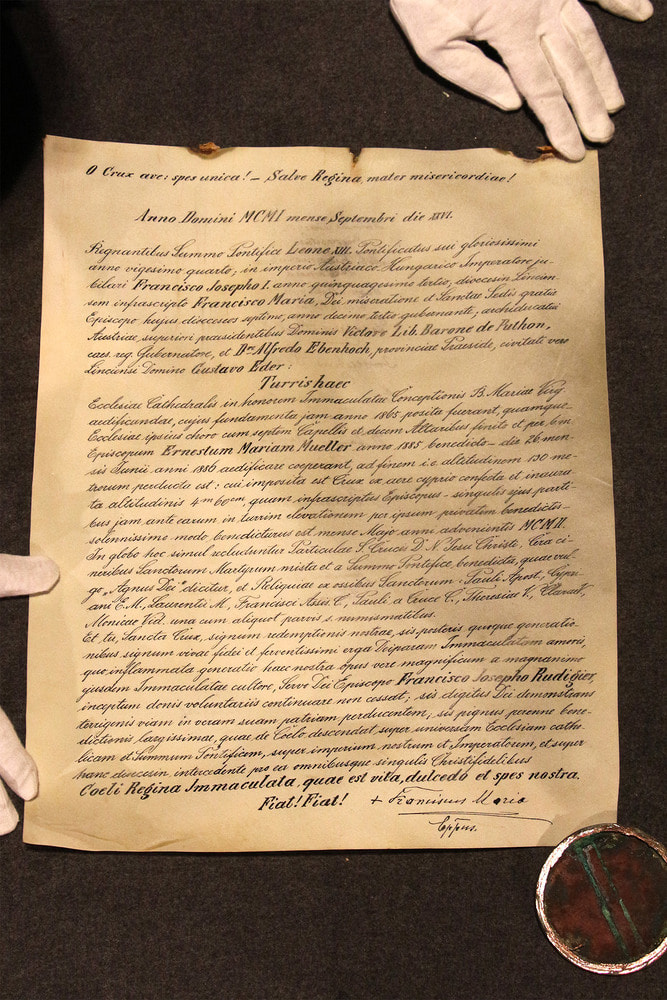 O Crux ave: spes unica! – Salve Regina, mater misericordiae!
Anno Domini MCMI mense Septembri die XXVI.
Regnantibus Summo Pontifice Leone XIII. Pontificatus sui gloriosissimi
anno vigesimo quarto; in imperio Austriaco-Hungarico Imperatore ju-
bilari Francisco Josepho I. anno quinquagesimo tertio; diocesin Lincien-
sem infrascripto Francisco Maria, Dei miseratione et Sanctae Sedis gratia
Episcopo hujus dioeceseos septimo, anno decimo tertio gubernante, archiducatui
Austriae superiori praesidentibus Dominis Victore Lib. Barone de Puthon,
caes. reg. Gubernatore, et Dre Alfredo Ebenhoch, provinciae Praeside, civitati vero
Linciensi Domino Gustavo Eder:
Turris haec
Ecclesiae Cathedralis in honorem Immaculatae Conceptionis B. Mariae Virg.
aedificandae, cujus fundamenta jam anno 1865 posita fuerant, quamque
Ecclesiae ipsius choro cum septem Capellis et decem Altaribus finito et per
Episcopum Ernestum Mariam Mueller anno 1885 benedicto – die 26 men-
sis Junii anni 1886 aedificare coeperant, ad finem i. e. altitudinem 130 me-
trorum perducta est: cui imposita est Crux ex aere cyprio confecta et inaura-
ta altitudinis 4 m 60 cm, quam infrascriptus Episcopus – singulis ejus parti-
bus jam ante earum in turrim elevationem per ipsum privatim benedictis –
solemnissimo modo benedicturus est mense Majo anni advenientis MCMII.
In globo hoc simul recluduntur Particulae S. Crucis D. N. Jesu Christi, Cera ci-
neribus Sanctorum Martyrum mista et a Summo Pontifice benedicta, quae vul-
go „Agnus Dei" dicitur, et Reliquiae ex ossibus Sanctorum: Pauli Apost., Cypri-
ani E. M., Laurentii M., Francisci Assis. C., Pauli a Cruce C., Theresiae V.,
Monicae Vid. una cum aliquot parvis s. numismatibus.
Et tu, Sancta Crux, signum redemptionis nostrae, sis posteris quoque generatio-
nibus signum vivae fidei et ferventissimi erga Deiparam Immaculatam amoris,
quo inflammata generatio haec nostra opus vere magnificum a magnanimo
ejusdem Immaculatae cultore, Servo Dei Episcopo Francisco Josepho Rudigier,
inceptum donis voluntariis continuare non cessat; sis digitus Dei demonstrans
terrigenis viam in veram suam patriam perducentem; sis pignus perenne bene-
dictionis largissimae, quae de Coelo descendat super universam Ecclesiam catho-
licam et Summum Pontificem, super imperium nostrum et Imperatorem, et super
hanc dioecesin, intercedente pro ea omnibusque singulis Christifidelibus
Coeli Regina Immaculata, quae est vita, dulcedo et spes nostra.
Fiat! Fiat! + Franciscus Maria
Eppus.